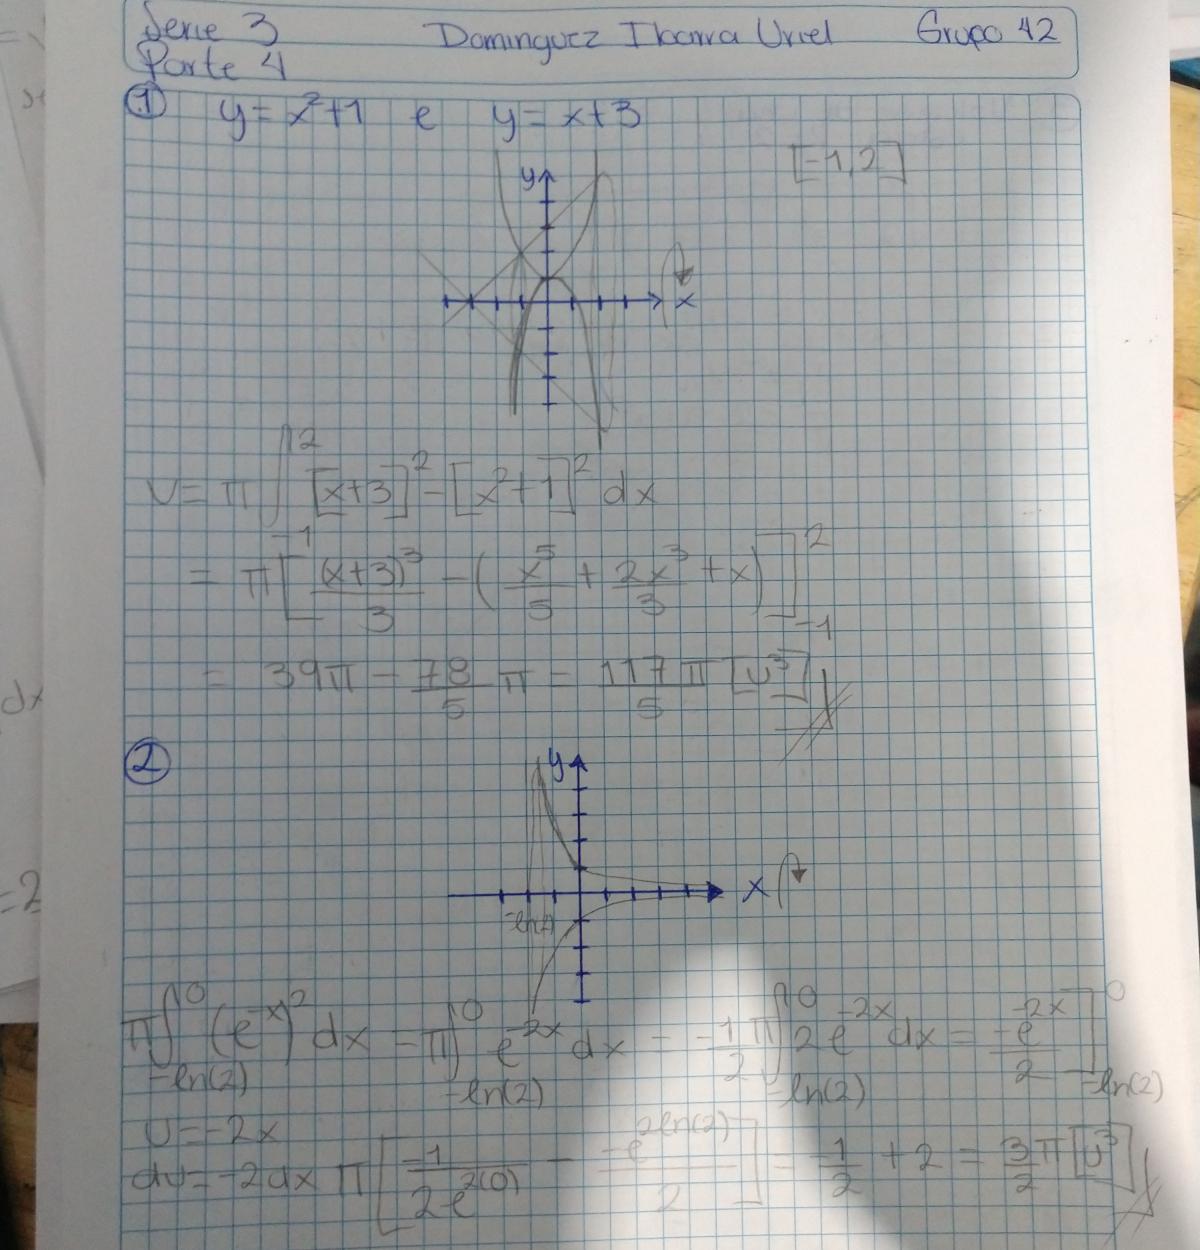 Serie 3 Dominguez Ibarra Uriel Grupo 42
Parte 4
1 y = x²+1 e y = x+3
[-1,2]
y
x
V = π ∫₋₁² [x+3]² - [x²+1]² dx
= π [ (x+3)³/3 - ( x⁵/5 + 2x³/3 + x) ]₋₁²
= 39π - 78/5 π = 117π/5 [u³]
2
y
x
π ∫₋ln(2)⁰ (e⁻ˣ)² dx = π ∫₋ln(2)⁰ e⁻²ˣ dx = -1/2 π ∫₋ln(2)⁰ 2e⁻²ˣ dx = -e⁻²ˣ/2 ]₋ln(2)⁰
U = -2x
du = -2dx π [ -1/2e²⁽⁰⁾ - -e²ˡⁿ⁽²⁾/2 ] = -1/2 + 2 = 3/2 π [u³]